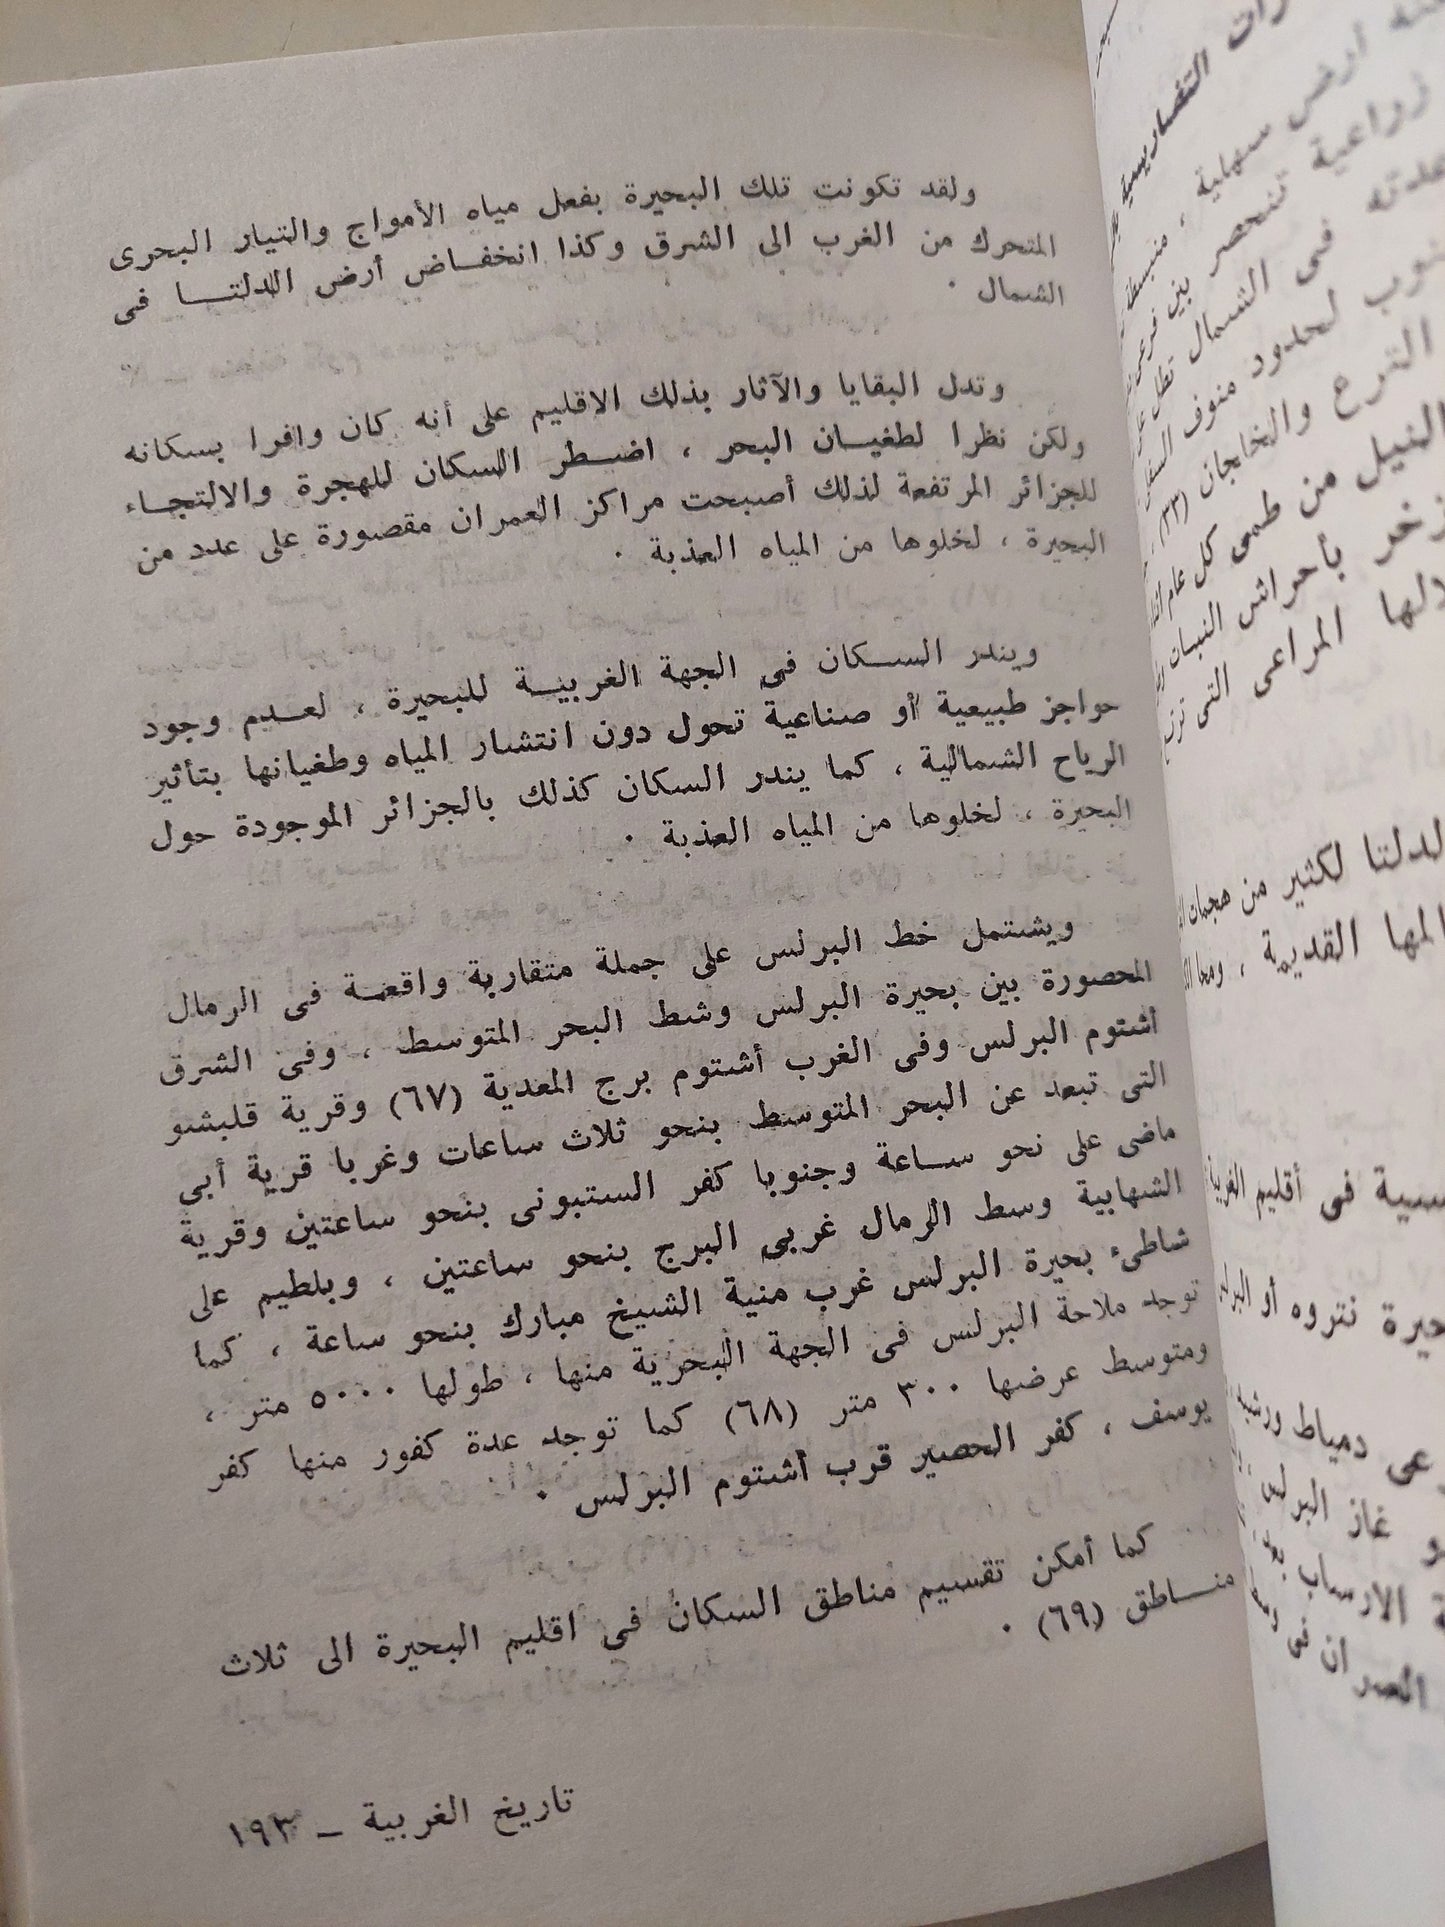 ولقد تكونت تلك البحيرة بفعل مياه الأمواج والتيار البحرى
المتحرك من الغرب الى الشرق وكذا انخفاض أرض الدلتا فى
الشمال .
وتدل البقايا والآثار بذلك الاقليم على أنه كان وافرا بسكانه
ولكن نظرا لطغيان البحر ، اضطر السكان للهجرة والالتجاء
للجزائر المرتفعة لذلك أصبحت مراكز العمران مقصورة على عدد من
البحيرة ، لخلوها من المياه العذبة .
ويندر السكان في الجهة الغربية للبحيرة ، لعديم وجود
حواجز طبيعية أو صناعية تحول دون انتشار المياه وطغيانها بتأثير
الرياح الشمالية ، كما يندر السكان كذلك بالجزائر الموجودة حول
البحيرة ، لخلوها من المياه العذبة .
ويشتمل خط البرلس على جملة متقاربة واقعة فى الرمال
المحصورة بين بحيرة البرلس وشط البحر المتوسط ، وفى الشرق
أشتوم البرلس وفى الغرب أشتوم برج المعدية (٦٧) وقرية قلبشو
التى تبعد عن البحر المتوسط بنحو ثلاث ساعات وغربا قرية أبى
ماضى على نحو ساعة وجنوبا كفر الستبونى بنحو ساعتين وقرية
الشهابية وسط الرمال غربى البرج بنحو ساعتين ، وبلطيم على
شاطىء بحيرة البرلس غرب منية الشيخ مبارك بنحو ساعة ، كما
توجد ملاحة البرلس فى الجهة البحرية منها ، طولها ٥٠٠٠ متر ،
ومتوسط عرضها ٣٠٠ متر (٦٨) كما توجد عدة كفور منها كفر
يوسف ، كفر الحصير قرب أشتوم البرلس .
كما أمكن تقسيم مناطق السكان في اقليم البحيرة الى ثلاث
مناطق (٦٩) .
تاريخ الغربية – ١٩٣
التضاريسية
ارض سهلية ، منبسطة
زراعية تنحصر بين فرعى
فى الشمال تطل على
لحدود منوف
الترع والخلجان (٣٣)
النيل من طمى كل عام
بأحراش النبات
المراعى التى
لدلتا لكثير من هجمات
القديمة ،
فى أقليم الغربية
نتروه أو
دمياط
غاز البرلس
الارساب
العمران فى